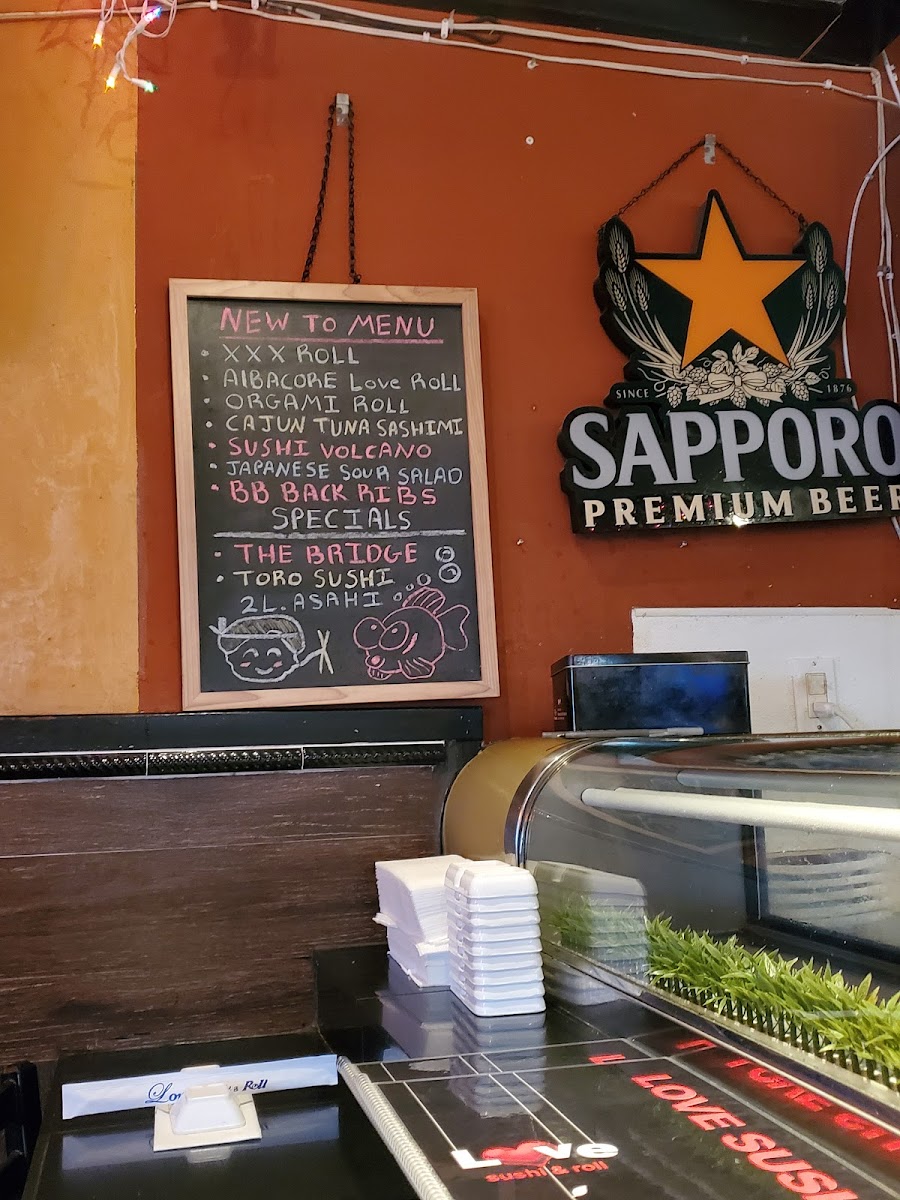 NEW TO MENU
• XXX ROLL
• AlBACORE Love ROLL
• ORGAMI ROLL
• CAJUN TUNA SASHIMI
• SUSHI VOLCANO
• JAPANESE SOUR SALAD
• BB BACK RIBS
SPECIALS
• THE BRIDGE
• TORO SUSHI
2L. ASAHI
SINCE 1876
SAPPORO
PREMIUM BEER
Roll
LOVE SUSHI
Love
sushi & roll